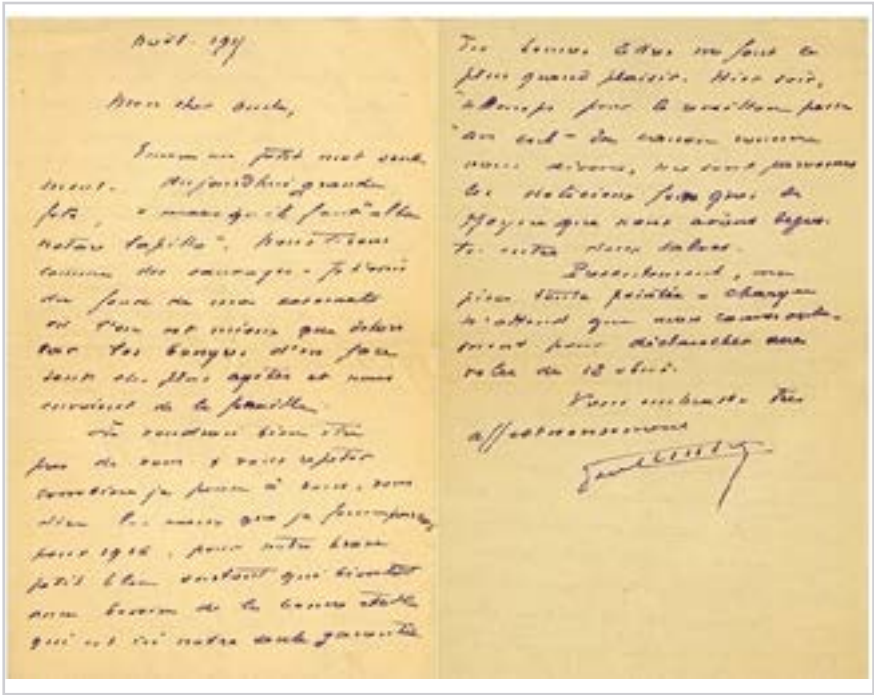 Mon cher oncle,
Encore un petit mot seule-
ment. Aujourd'hui grande
fête, il faut
Nous tirons
comme des sauvages. Je t'écris
du fond de ma casemate
où l'on est mieux que dehors
car les d'en face
sont des plus agités et nous
envoient de la
Je voudrais bien être
près de vous & vous répéter
combien je pense à vous, vous
dire les vœux que je
pour 1916, pour notre brave
petit bleu surtout qui bientôt
aura besoin de la bonne étoile
qui est ici notre seule garantie
Tes bonnes lettres me font le
plus grand plaisir. Hier soir,
à temps pour le réveillon
au cul-de canon comme
nous disons, me sont parvenus
les délicieux foies gras de
que nous avons dégus-
tés entre deux salves.
Présentement, ma
pièce toute pointée & chargée
n'attend que mon commande-
ment pour déclancher une
volée de 12 obus.
Vous embrasse très
affectueusement